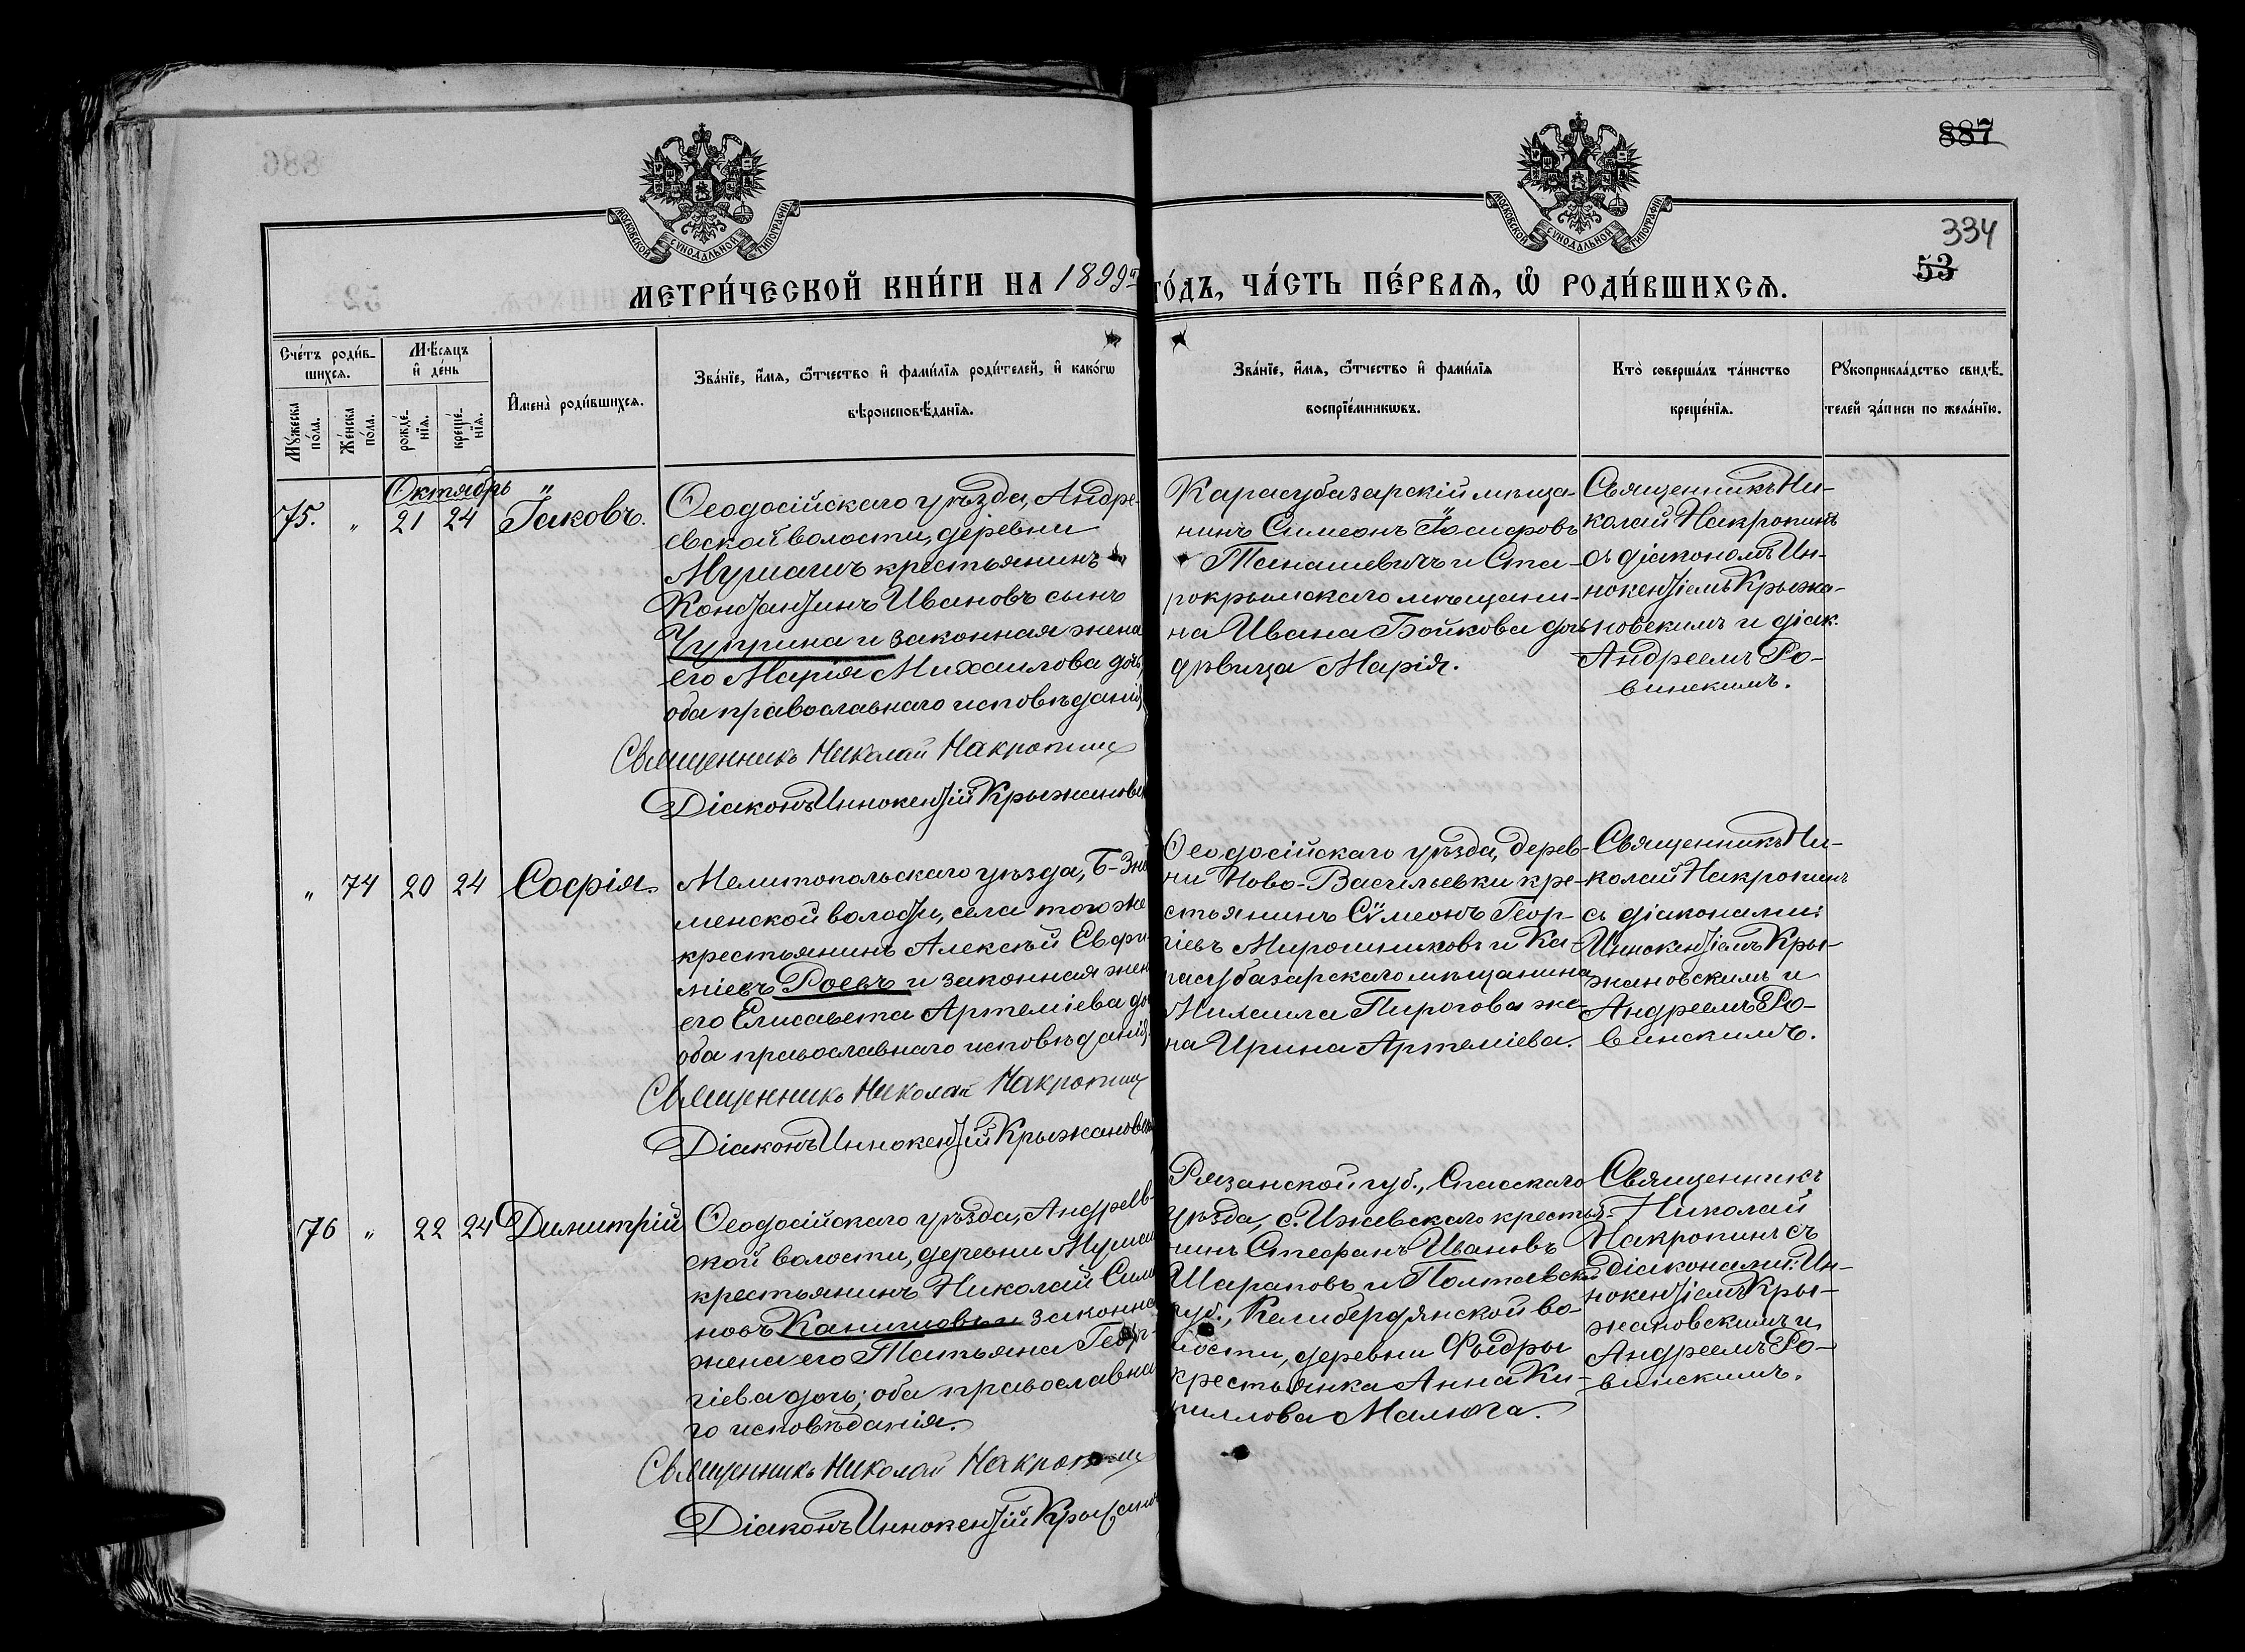 887
334
53
МОСКОВСКОЙ СѴНОДАЛЬНОЙ ТИПОГРАФІИ
МОСКОВСКОЙ СѴНОДАЛЬНОЙ ТИПОГРАФІИ
МЕТРИ́ЧЕСКОЙ КНИ́ГИ НА 1899 ГО́ДЪ, ЧА́СТЬ ПЕ́РВАЯ, Ѡ РОДИ́ВШИХСѦ.
Сче́тъ роди́в-
шихсѧ.
Мѣ́сяцъ
и҆ де́нь
Мꙋ́жеска по́ла.
Же́нска по́ла.
рожде́-
нїѧ.
креще́-
нїѧ.
И҆мена̀ роди́вшихсѧ.
Зва́нїе, и҆́мѧ, ѻ҆́тчество и҆ фами́лїѧ роди́телей, и҆ како́гѡ
вѣроисповѣ́данїѧ.
Зва́нїе, и҆́мѧ, ѻ҆́тчество и҆ фами́лїѧ
воспрїе́мникѡвъ.
Кто̀ соверша́лъ та́инство
креще́нїѧ.
Рꙋкоприкла́дство свидѣ́-
телей за́писи по жела́нїю.
Октябрь
75. " 21 24 Іаковъ.
Ѳеодосійскаго уѣзда, Андре-
евской волости, деревни
Мушашъ крестьянинъ
Константинъ Ивановъ сынъ
Чуприна и законная жена
его Марія Михаилова дочь,
оба православнаго исповѣданія,
Священникъ Николай Накропин
Діаконъ Иннокентій Крыжановск
Карасубазарскій мѣща-
нинъ Симеонъ Іосифовъ
Танашевичъ и Ста-
рокрымскаго мѣщани-
на Ивана Бойкова дочь
дѣвица Марія.
Священникъ Ни-
колай Накропинъ
съ діакономъ Ин-
нокентіемъ Крыжа-
новскимъ и діак.
Андреемъ Ро-
винскимъ.
" 74 20 24 Софія.
Мелитопольскаго уѣзда, Б-Зна
менской волости, села того же
крестьянинъ Алексѣй Евфи-
міевъ Роевъ и законная жен
его Елисавета Артеміева до
оба православнаго исповѣданія.
Священникъ Николай Накропин
Діаконъ Иннокентій Крыжановск
Ѳеодосійскаго уѣзда, дерев-
ни Ново-Васильевки кре-
стьянинъ Сѵмеонъ Геор-
гіевъ Мирошниковъ и Ка-
расубазарскаго мѣщанина
Михаила Пирогова же-
на Ирина Артеміева.
Священникъ Ни-
колай Накропинъ
съ діаконами:
Иннокентіемъ Кры-
жановскимъ и
Андреемъ Ро-
винскимъ.
76 " 22 24 Димитрій
Ѳеодосійскаго уѣзда, Андреев-
ской волости, деревни Мушаш
крестьянинъ Николай Симо
новъ Канишовъ и законна
жена его Татьяна Геор-
гіева дочь; оба православна
го исповѣданія.
Священникъ Николай Накропин
Діаконъ Иннокентій Крыжан
Рязанской губ., Спасскаго
уѣзда, с. Ижевскаго крестья-
нинъ Стефанъ Ивановъ
Шараповъ и Полтавской
губ., Келибердянской во-
лости, деревни
крестьянка Анна Ки-
риллова Малюга.
Священникъ
Николай
Накропинъ съ
діаконами: Ин-
нокентіемъ Кры-
жановскимъ и
Андреемъ Ро-
винскимъ.